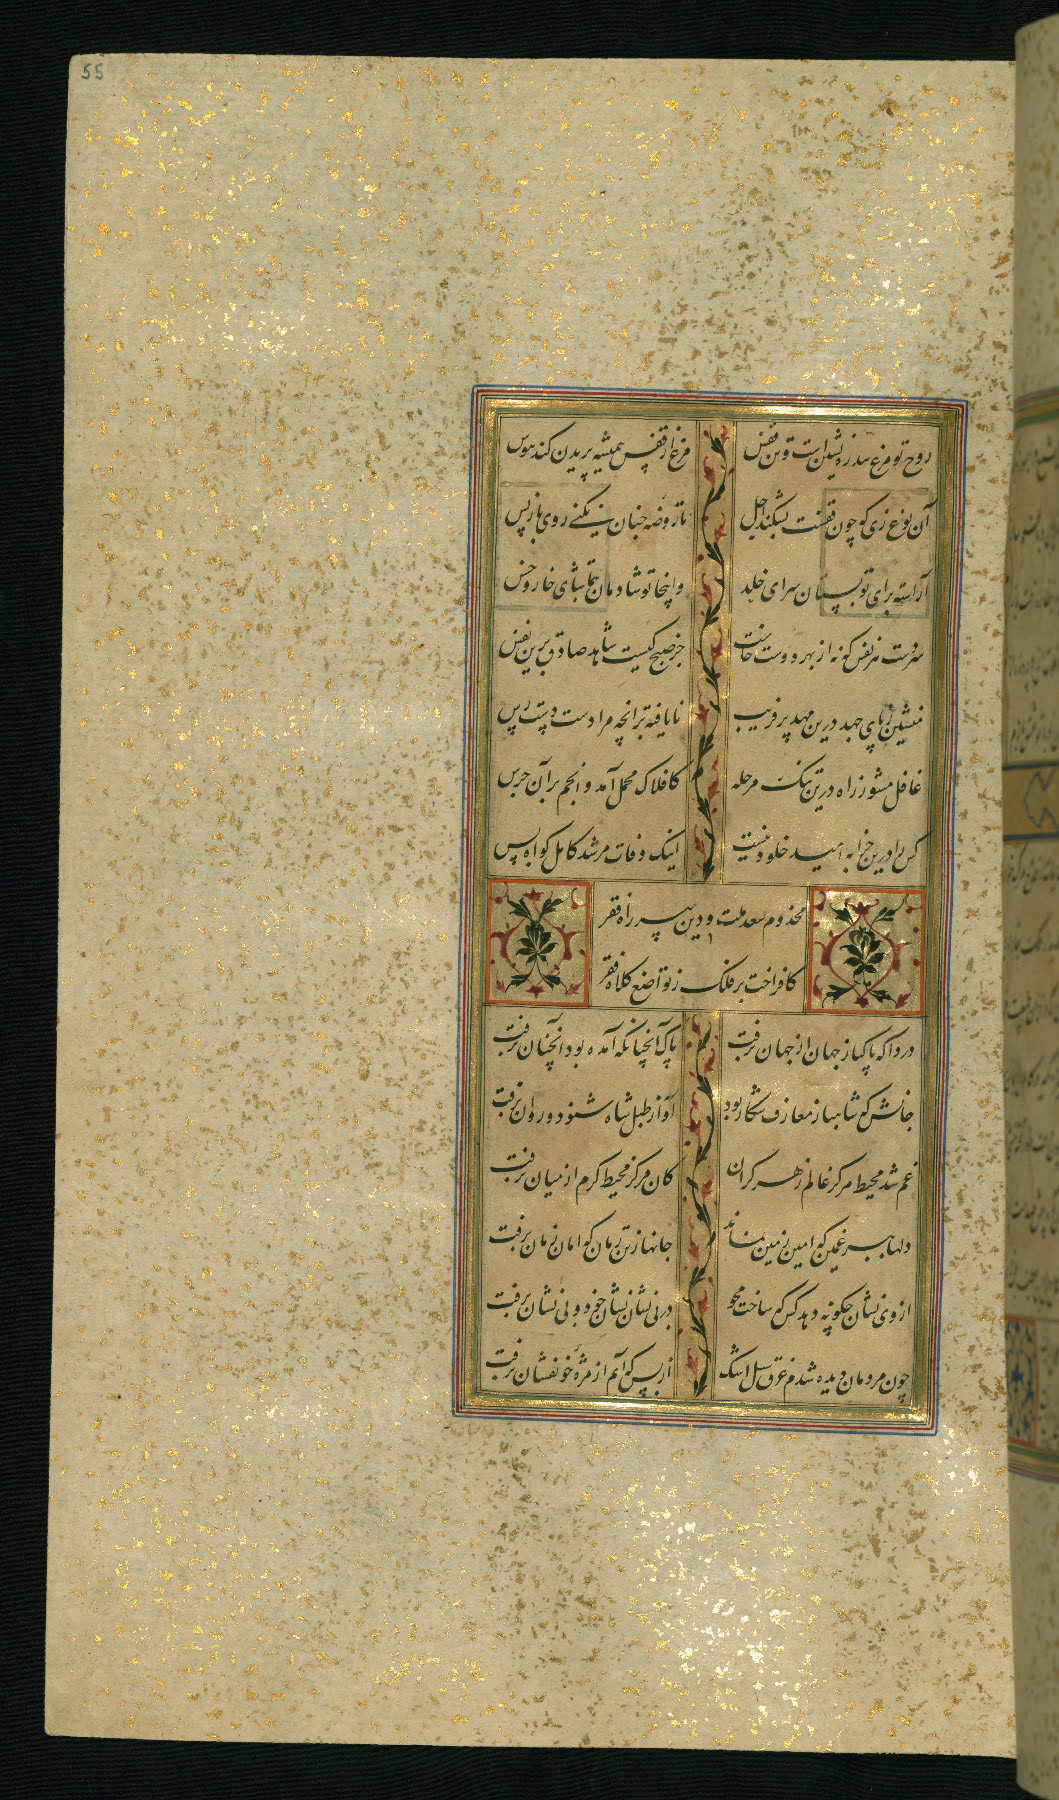 55
روح تو مرغ سدره نشین است و تن قفس مرغ از قفس همیشه پریدن کند هوس
آن نوع زی که چون قفست بشکند اجل تا روضه جنان نکنی روی باز پس
آراسته برای تو بستان سرای خلد و اینجا تو شادمان بتماشای خار و خس
سردست هر نفس که نه از بهر دوست خاست جز صبح کیست شاهد صادق برین نفس
منشین ز پای جهد درین مهد پر فریب نایافته بر آنچه مرادست دست رس
غافل مشو ز راه درین تنگ مرحله کافلاک محمل آمد و انجم بر آن جرس
کس را درین خرابه امید خلود نیست اینک وفات مرشد کامل گواه بس
مخدوم سعد ملت و دین پیر راه فقر
کافراخت بر فلک ز تواضع کلاه فقر
دردا که پاکباز جهان از جهان برفت پاک آنچنانکه آمده بود آنچنان برفت
جانش که شاهباز معارف شکار بود آواز طبل شاه شنود و روان برفت
غم شد محیط مرکز عالم ز هر کران کان مرکز محیط کرم از میان برفت
دلها بهر غمین که امین زمین نماند جانها ز تن رمان که امان زمان برفت
از وی نشان چگونه دهد کس که ساخت محو در بی نشان نشان خود و بی نشان برفت
چون مردمان دیده شدم غرق سیل اشک از بس که آبم از مژه خونفشان برفت